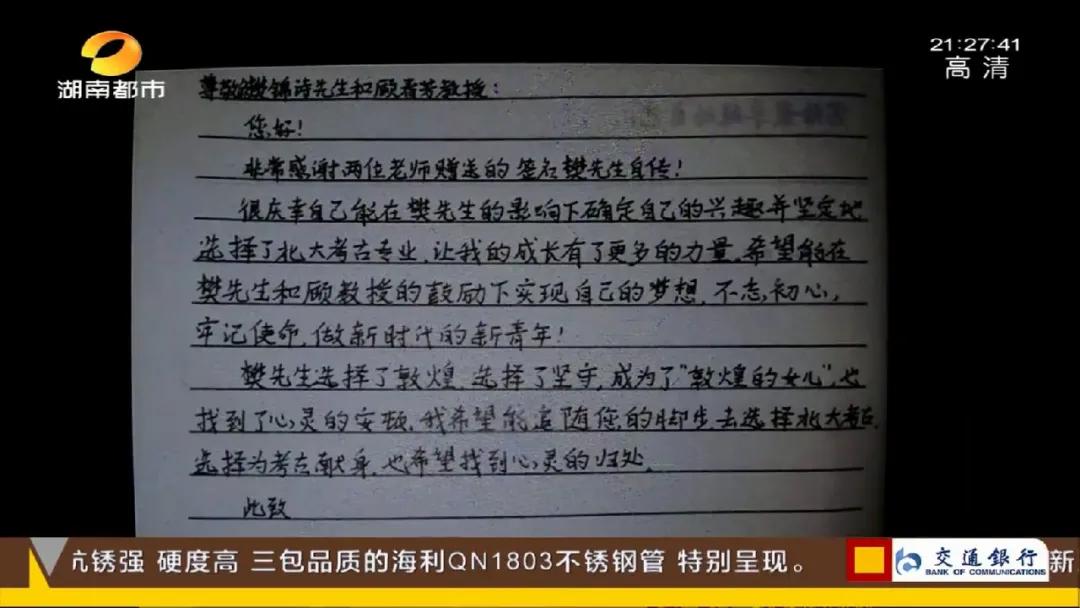 湖南都市
21:27:41
高清
尊敬的樊锦诗先生和顾春芳教授：
您好！
非常感谢两位老师赠送的签名樊先生自传！
很庆幸自己能在樊先生的影响下确定自己的兴趣并坚定地
选择了北大考古专业，让我的成长有了更多的力量，希望能在
樊先生和顾教授的鼓励下实现自己的梦想，不忘初心，
牢记使命，做新时代的新青年！
樊先生选择了敦煌，选择了坚守，成为了“敦煌的女儿”，也
找到了心灵的安顿，我希望能追随您的脚步去选择北大考古，
选择为考古献身，也希望找到心灵的归处。
此致
抗锈强 硬度高 三包品质的海利QN1803不锈钢管 特别呈现。
交通银行
BANK OF COMMUNICATIONS
新